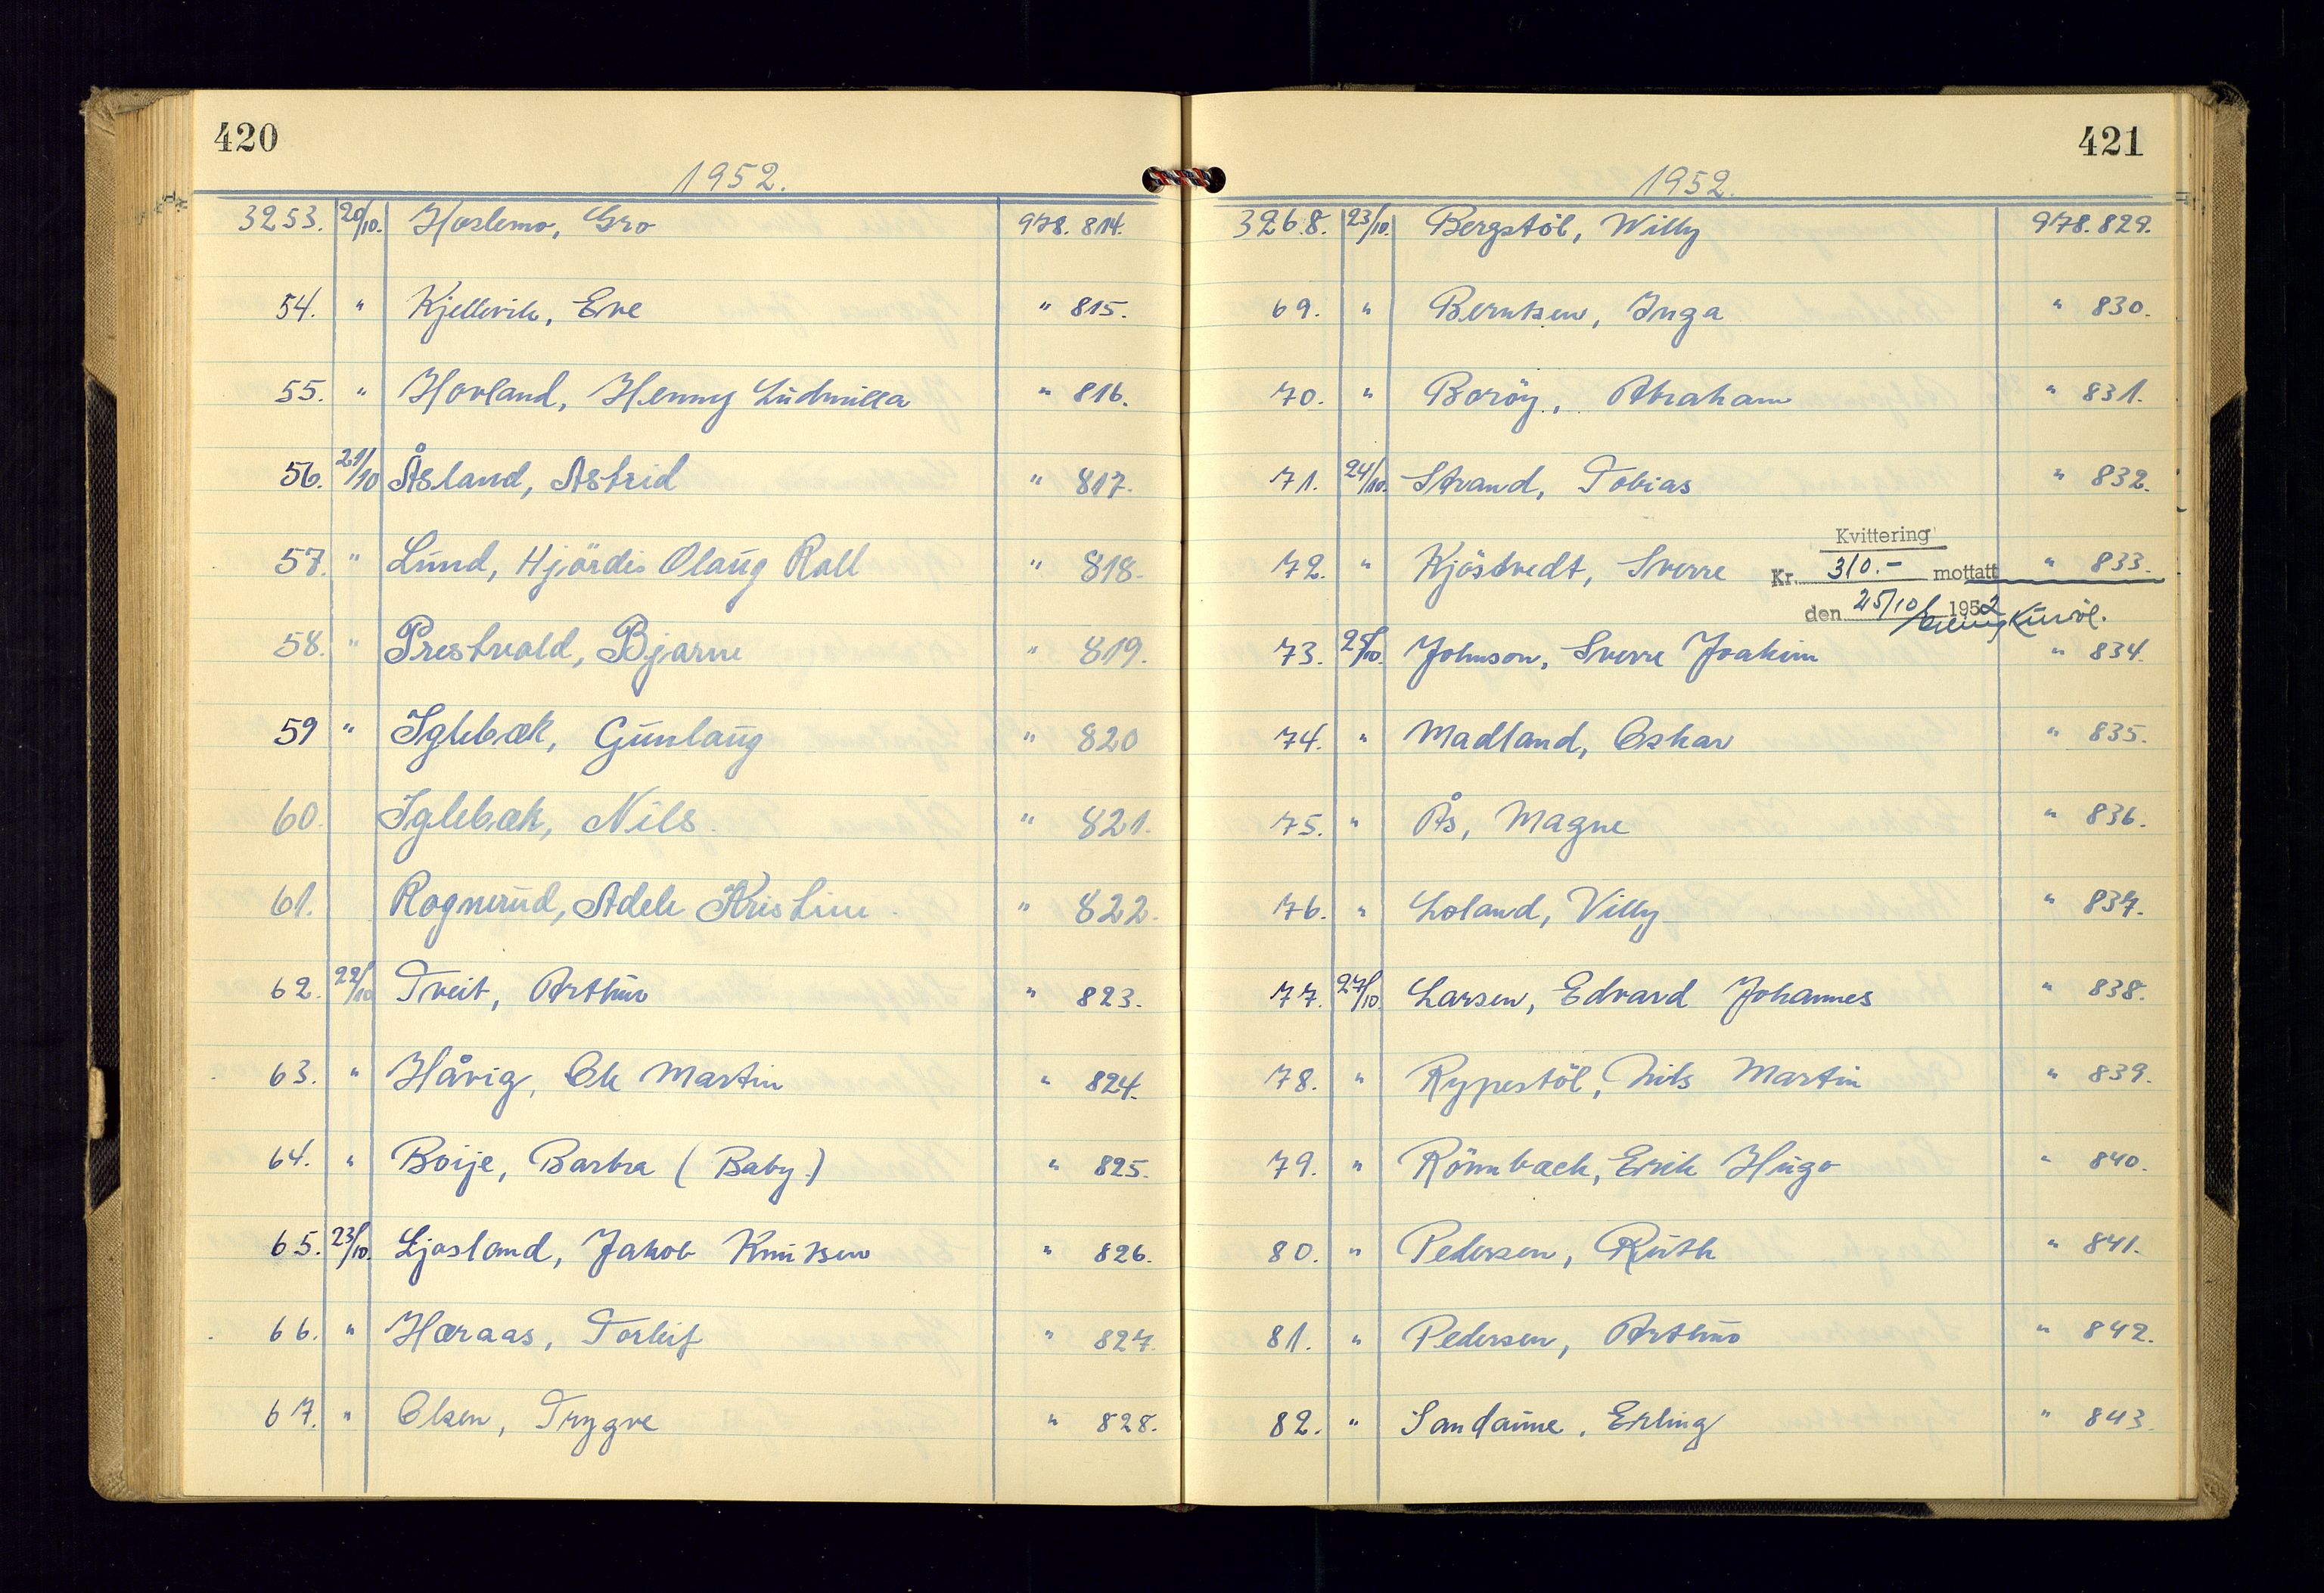 420
1952.
3253. 20/10. Hoslemo, Gro 978.814.
54. " Kjellevik, Eve " 815.
55. " Hovland, Henny Ludmilla " 816.
56. 21/10 Åsland, Astrid " 817.
57. " Lund, Hjördis Olaug Roll " 818.
58. " Prestvold, Bjarne " 819.
59 " Iglebæk, Gunlaug " 820
60. Iglebæk, Nils. " 821.
61. Rognerud, Adele Kristine " 822.
62. 22/10 Tveit, Arthur " 823.
63. " Håvig, Ole Martin " 824.
64. " Boije, Barbra (Baby.) " 825.
65. 23/10. Ljosland, Jakob Knutsen " 826.
66. " Haraas, Torleif " 827.
67. " Olsen, Trygve " 828.
421
1952.
3268. 23/10. Bergstöl, Willy 978.829.
69. " Berntsen, Inga " 830.
70. " Boröy, Abraham " 831.
71. 24/10. Strand, Tobias " 832.
Kvittering
72. " Kjöstvedt, Sverre Kr. 310.- mottatt " 833.
den 25/10 1952
73. 25/10. Johnson, Sverre Joakim " 834.
74. " Madland, Oskar " 835.
75. " Ås, Magne " 836.
76. " Loland, Villy " 837.
77. 27/10. Larsen, Edvard Johannes " 838.
78. " Rypestöl, Nils Martin " 839.
79. " Rönnbäck, Erik Hugo " 840.
80. " Pedersen, Ruth " 841.
81. " Pedersen, Arthur " 842.
82. " Sandaune, Erling " 843.